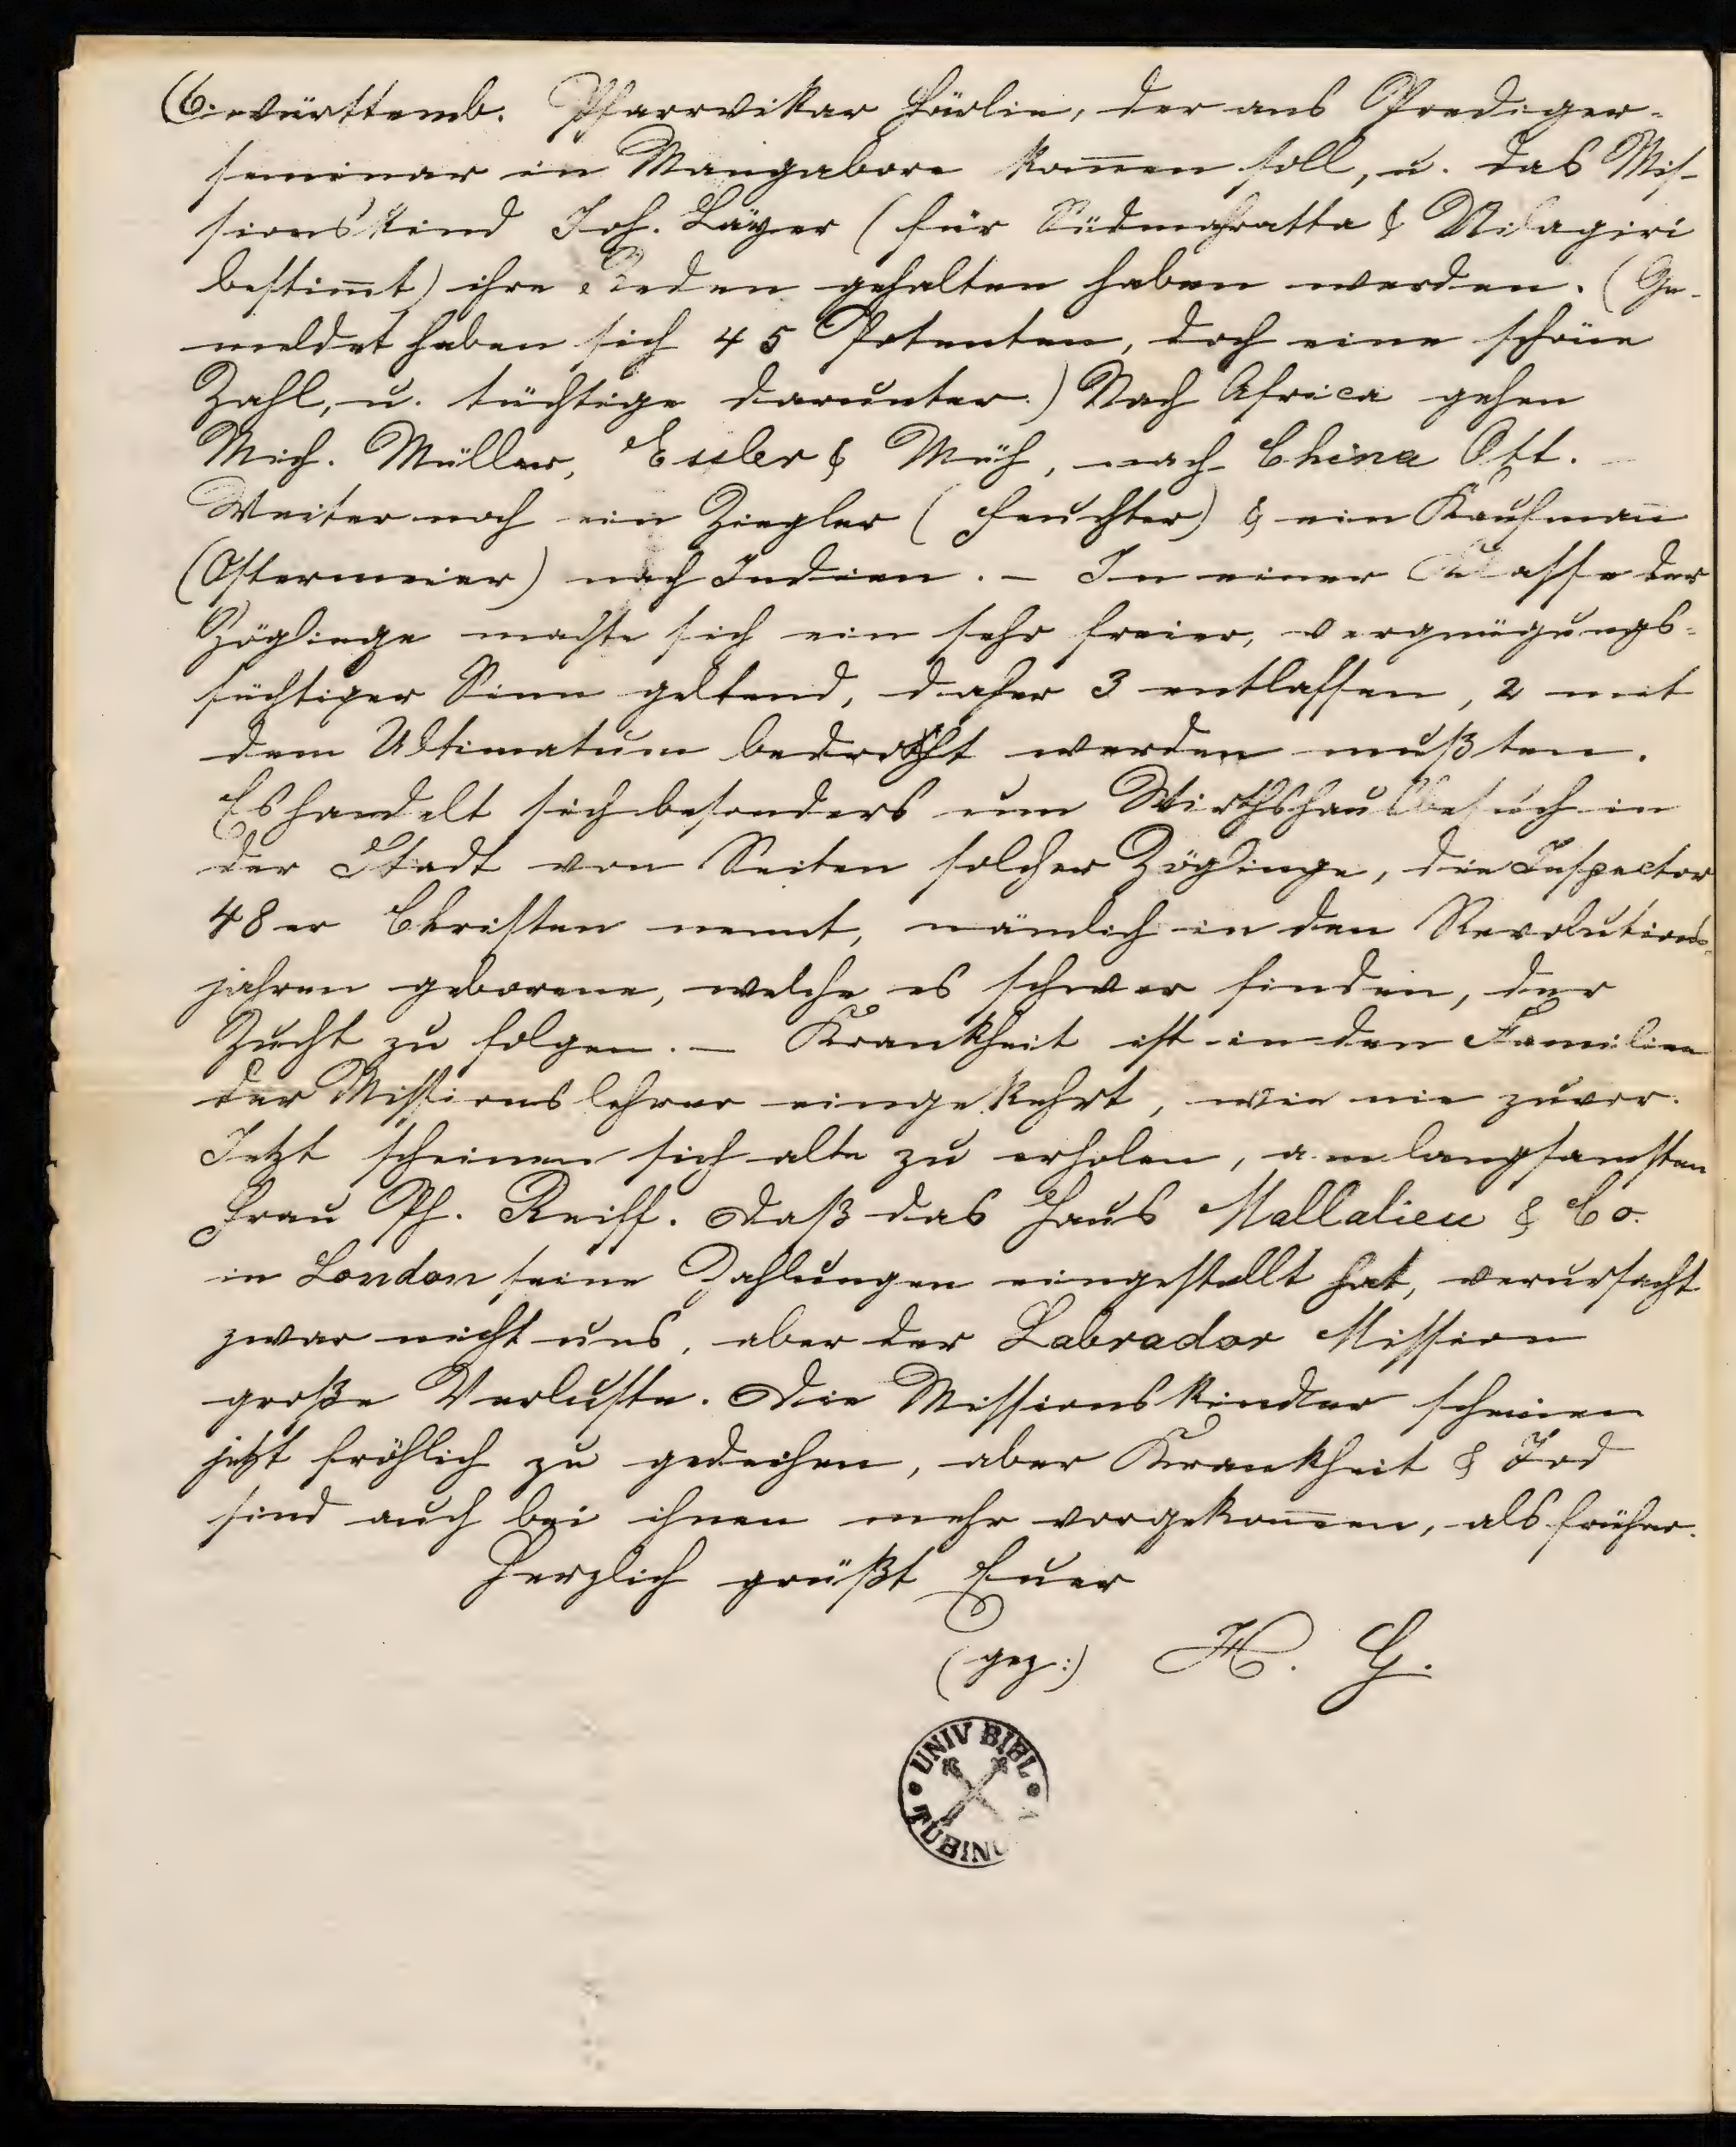 (6. württemb. Pfarrvikar Härlin, der ans Prediger-
seminar in Mangalore kom̅en soll, u. das Mis-
sionskind Joh. Layer (für Südmahratta & Nilagiri
bestim̅t) ihre Reden gehalten haben werden. (Ge-
meldet haben sich 45 Petenten, doch eine schöne
Zahl, u. tüchtige darunter.) Nach Africa gehen
Mich. Müller, Eisler & Müh, nach China Ott. -
Weiter noch ein Ziegler (Feuchter) & ein Kaufman̅
(Ostermeier) nach Indien. - In einer Classe der
Zöglinge machte sich ein sehr freier, vergnügungs-
süchtiger Sinn geltend, daher 3 entlassen, 2 mit
dem Ultimatum bedroht werden mußten.
Es handelt sich besonders um Wirthshausbesuch in
der Stadt von Seiten solcher Zöglinge, die Inspector
48er Christen nennt, nämlich in den Revolutions-
jahren geborene, welche es schwer finden, der
Zucht zu folgen. - Krankheit ist in den Familien
der Missionslehrer eingekehrt, wie nie zuvor.
Jetzt scheinen sich alte zu erholen, am langsamsten
Frau Ph. Reiff. Daß das Haus Mallalieu & Co.
in London seine Zahlungen eingestellt hat, verursacht
zwar nicht uns, aber der Labrador Mission
große Verluste. Die Missionskinder scheinen
jetzt fröhlich zu gedeihen, aber Krankheit & Tod
sind auch bei ihnen mehr vorgekom̅en, als früher.
Herzlich grüßt Euer
(gez:) H. G.
UNIV BIBL
TUBING